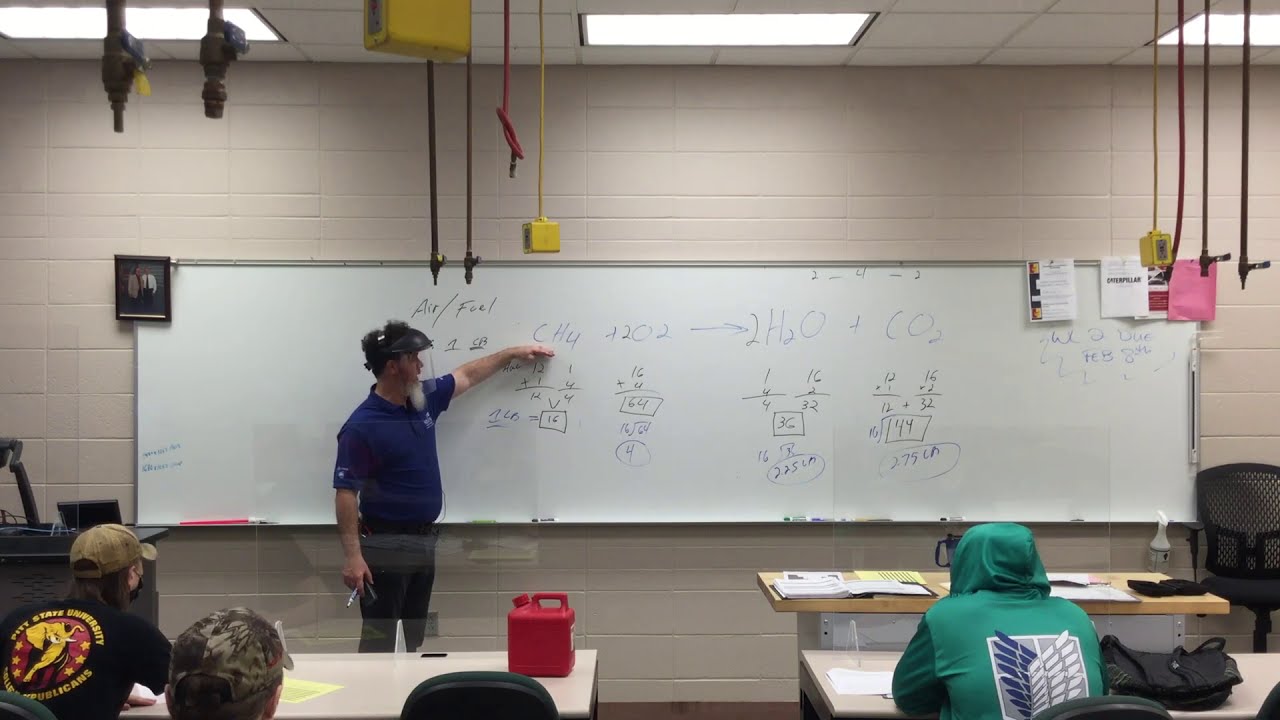 2 - 4 - 2
Air/Fuel
CH4 + 2O2 → 2H2O + CO2
1 CB
12 1
+ 1 4
12 4
1 LB = 16
16
+ 4
64
16√64
4
1 16
4 2
4 32
36
16
2.25 LB
12 16
× 1 × 2
12 + 32
16√144
2.75 LB
WC 2 DUE
FEB 8th
CATERPILLAR
PITT STATE UNIVERSITY